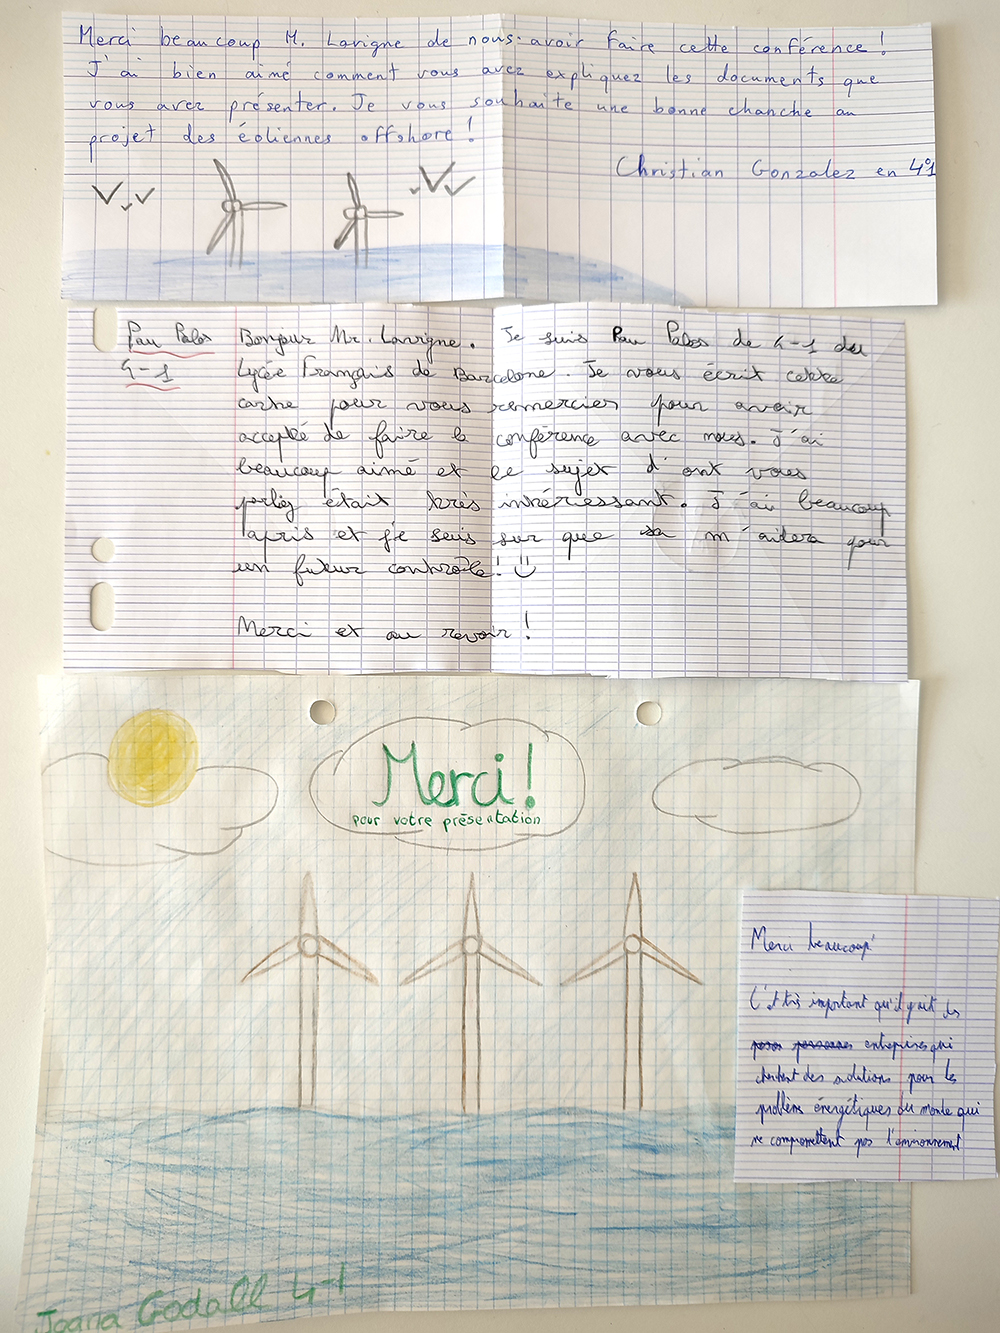 Merci beaucoup M. Lavigne de nous avoir faire cette conférence !
J'ai bien aimé comment vous avez expliquez les documents que
vous avez présenter. Je vous souhaite une bonne chanche au
projet des éoliennes offshore !
Christian Gonzalez en 4°1
Pau Palos
4-1
Bonjour Mr. Lavigne. Je suis Pau Palos de 4-1 du
Lycée Français de Barcelone. Je vous écrit cette
carte pour vous remercier pour avoir
accepté de faire la conférence avec nous. J'ai
beaucoup aimé et le sujet d'ont vous
parlez était très intréressant. J'ai beaucoup
apris et je suis sur que sa m'aidera pour
un futur controle! :)
Merci et au revoir !
Merci!
pour votre présentation
Merci beaucoup!
C'est très important qu'il y ait des
entreprises qui
cherchent des solutions pour les
problèms énergétiques du monde qui
ne compromettent pas l'environnement
Joana Godall 4-1